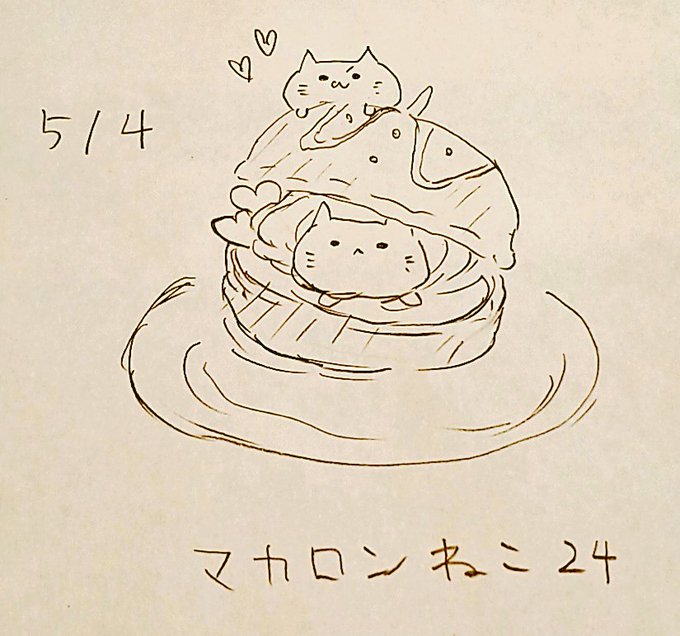 5/4
マカロンねこ24